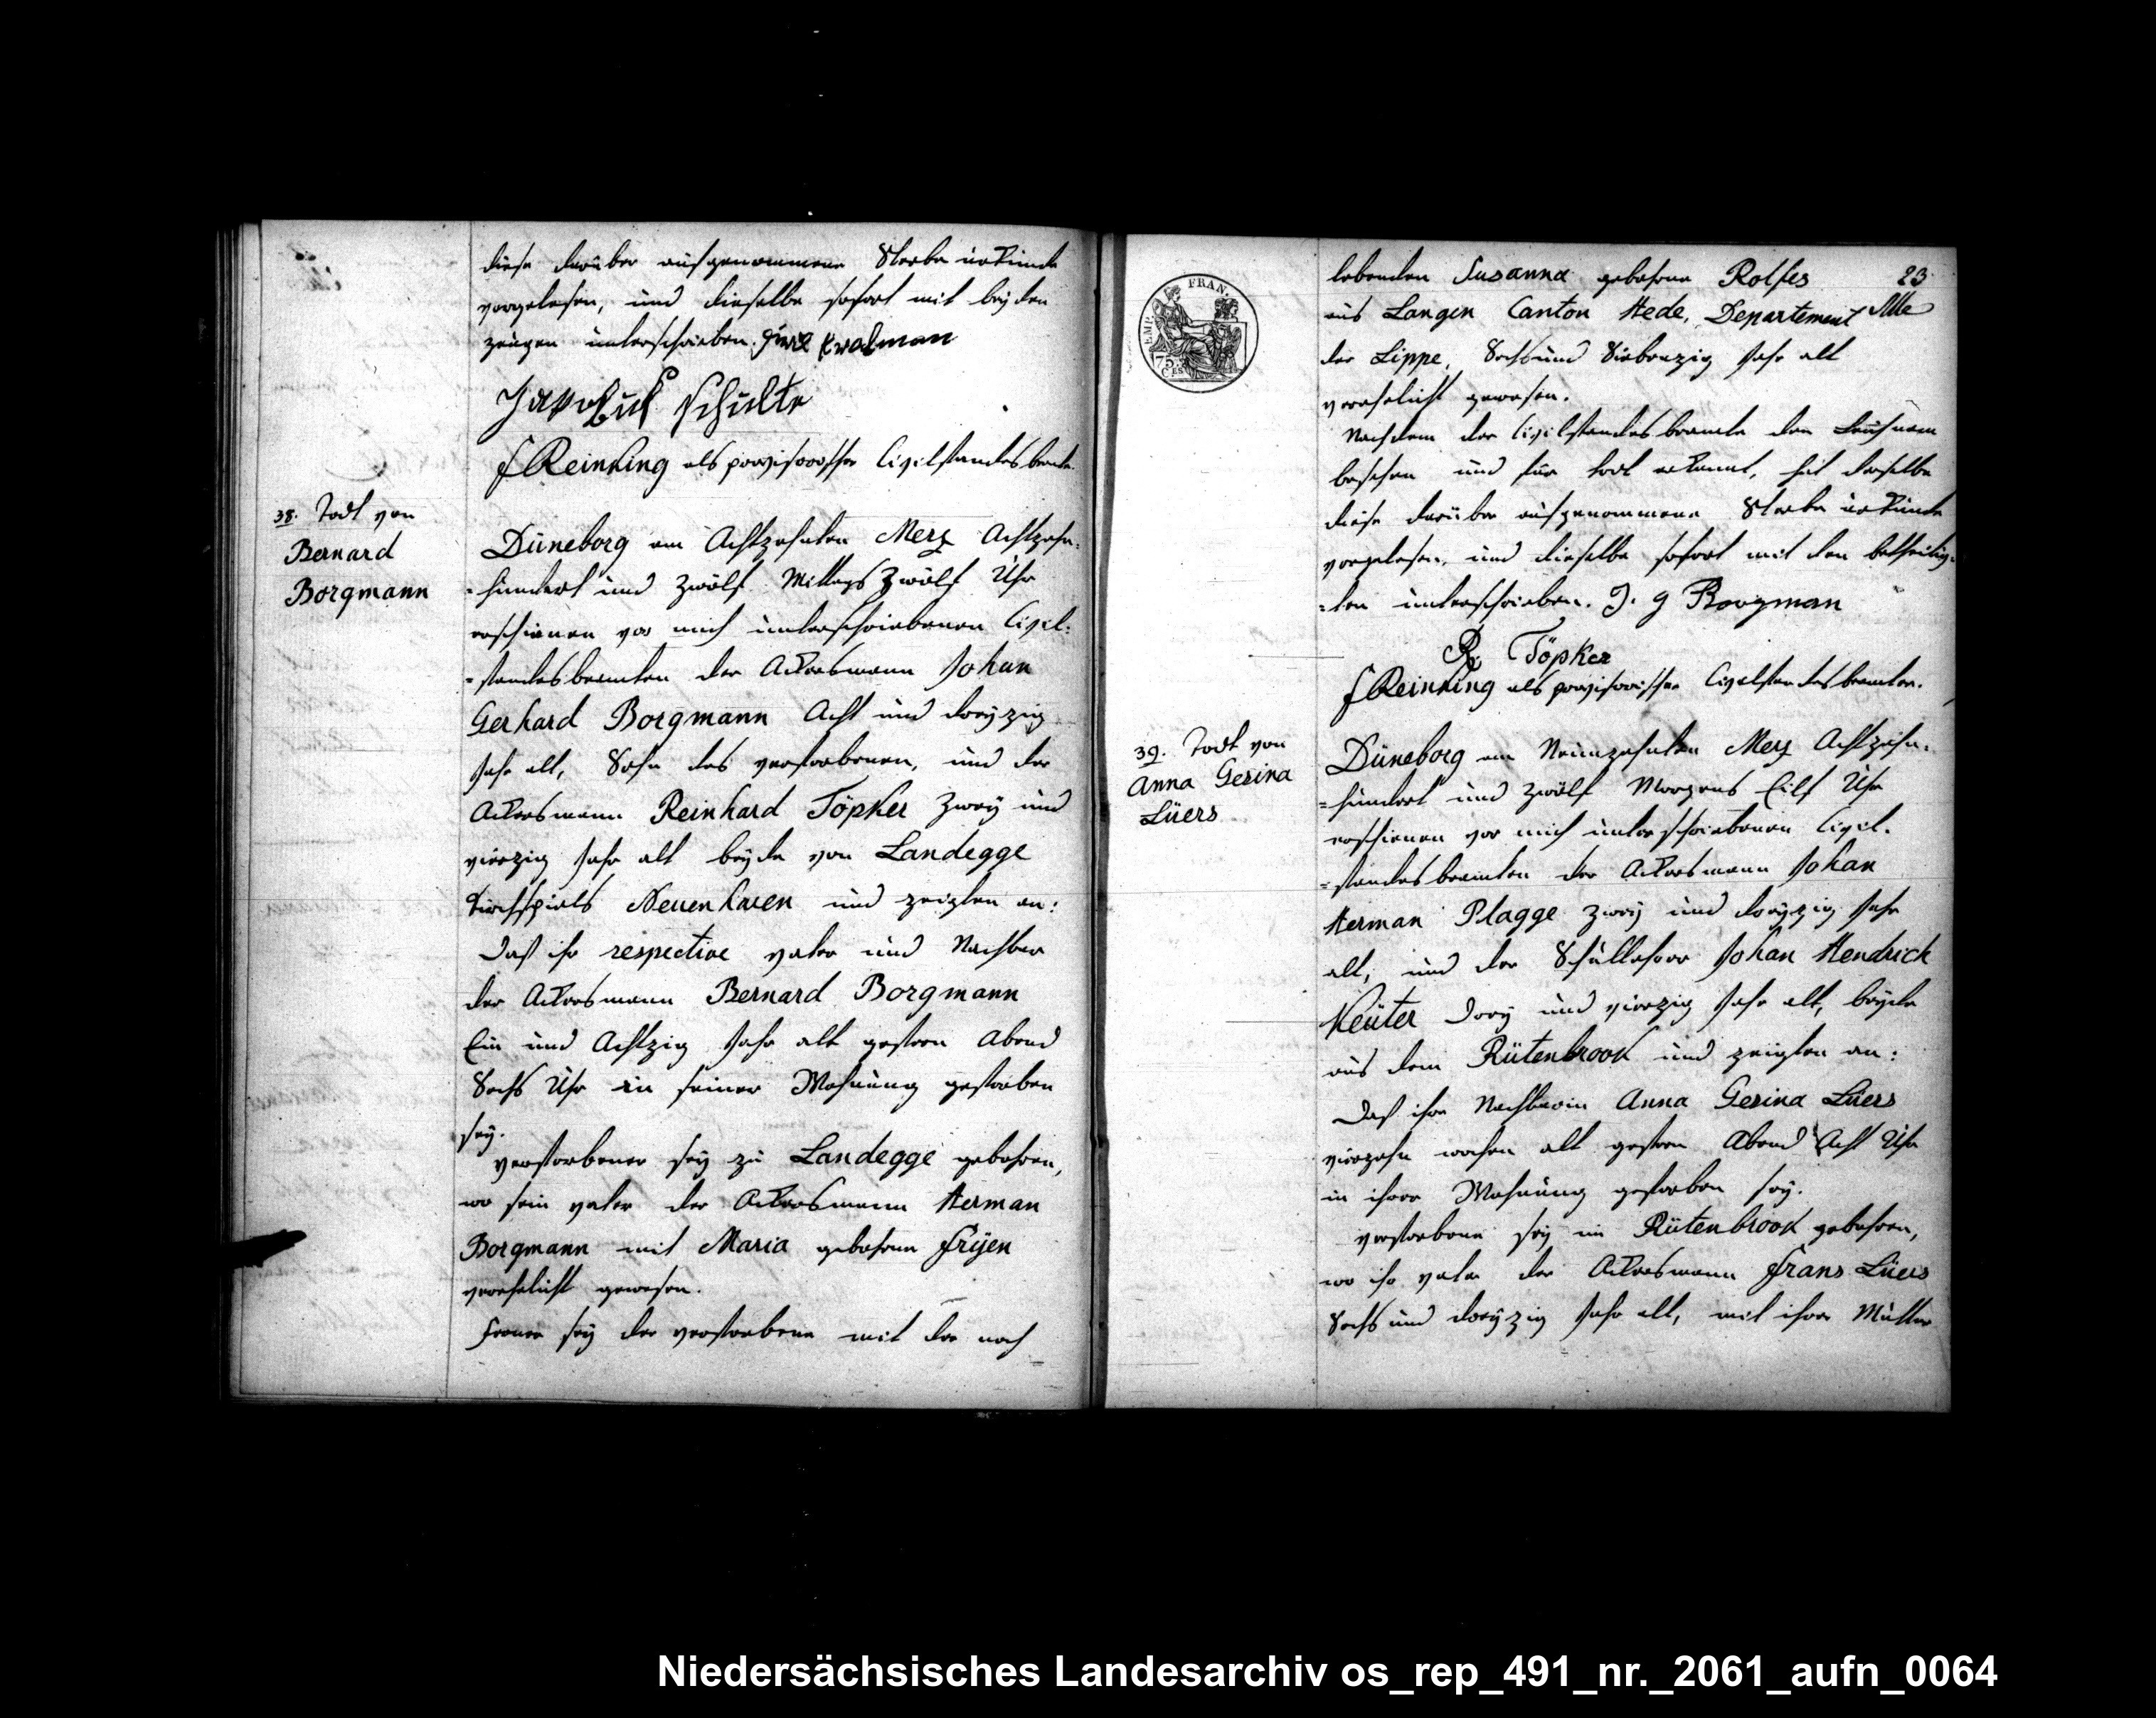 diese darüber aufgenommene Sterbe urkunde
vorgelesen, und dieselbe sofort mit beyden
zeugen unterschrieben.
Jakobus Schulte
F Reinking als provisorischer Civilstandesbeamte.
38. Todt von
Bernard
Borgmann
Düneborg am Achtzehnten Merz Achtzehn-
-hundert und zwölf Mittags Zwölf Uhr
erschienen vor mich unterschriebenen Civil-
-standesbeamten der Ackersmann Johan
Gerhard Borgmann Acht und dreyzig
Jahr alt, Sohn des verstorbenen, und der
Ackersmann Reinhard Töpker Zwey und
vierzig Jahr alt beyde von Landegge
Kirchspiels Neuenhaven und zeigten an:
Daß ihr respective vater und Nachbar
der Ackersmann Bernard Borgmann
Ein und Achtzig Jahr alt gestern Abend
Sechs Uhr in seiner Wohnung gestorben
sey.
verstorbener sey zu Landegge gebohren,
wo sein vater der Ackersmann Herman
Borgmann mit Maria gebohrne Frijen
verehelicht gewesen.
ferner sey der verstorbene mit der noch
EMP. FRAN.
75.
CES
23
lebenden Susanna gebohrne Rolfes
aus Langen Canton Hede, Departement
der Lippe, Sechs und Siebenzig Jahr alt
verehelicht gewesen.
Nachdem der Civilstandesbeamte den Leichnam
besehen und für todt erkannt, hat derselbe
diese darüber aufgenommene Sterbe urkunde
vorgelesen, und dieselbe sofort mit den betheilig-
-ten unterschrieben. J. g Borgman
R. Töpker
F Reinking als provisorischer Civilstandesbeamter.
39. Todt von
Anna Gesina
Lüers
Düneborg am Neunzehnten Merz Achtzehn-
-hundert und zwölf Morgens Eilf Uhr
erschienen vor mich unterschriebenen Civil-
-standesbeamten der Ackersmann Johan
Herman Plagge zwey und dreyzig Jahr
alt, und der Schullehrer Johan Hendrick
Keüter Drey und vierzig Jahr alt, beyde
aus dem Rütenbrook und zeigten an:
Daß ihre Nachbarin Anna Gesina Lüers
vierzehn wochen alt gestern Abend Acht Uhr
in ihrer Wohnung gestorben sey.
verstorbene sey im Rütenbrook gebohren,
wo ihr vater der Ackersmann Frans Lüers
Sechs und dreyzig Jahr alt, mit ihrer Mutter
Niedersächsisches Landesarchiv os_rep_491_nr._2061_aufn_0064